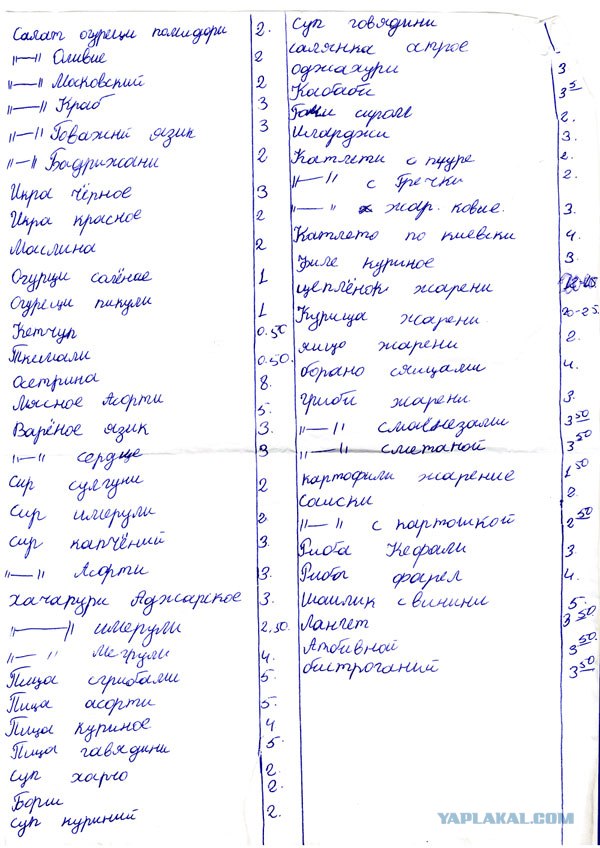 Салат огурещи помидори 2.
"—" Оливие 2
"—" Московский 2
"—" Краб 3
"—" Говажий язик 3
"—" Бадрижани 2
Икра чёрное 3
Икра красное 2
Маслина 2
Огурци солёное 1
Огурещи пикули 1
Кетчуп 0.50
Ткемали 0.50.
Осетрина 8.
Мясное Асорти 5.
Варёное язик 3.
"—" сердце 3
Сир сулгуни 2
Сир имерули 2
Сир капчёний 3.
"—" Асорти 3.
Хачапури Аджарское 3.
"—" имерули 2.50.
"—" Мегрули 4.
Пица сгрибами 5.
Пица асорти 5.
Пица куриное 4
Пица гавядини 5.
Суп харчо 2.
Борш 2.
Суп куриний 2.
Суп говядини
салянка острое
оджахури 3
Кабаби 3 50
2.
Еларджи 3.
Катлети с пууре 2.
"—" с Гречки 2.
"—" жар. ковие. 3.
Катлето по киевски 4.
Филе куриное 3.
цеплёнок жарени
Курица жарени 20-25.
яицо жарени 2.
борано сяицами 4.
гриби жарени 3.
"—" смаенезами 3 50
"—" сметаной 3 50
картофили жарение 1 50
Сасиски 2.
"—" с картошкой 2 50
Риба Кефали 3.
Риба фарел 4.
Шашлик свинини 5.
Лангет 3 50
Атбивной 3 50
бистроганий 3 50
YAPLAKAL.COM